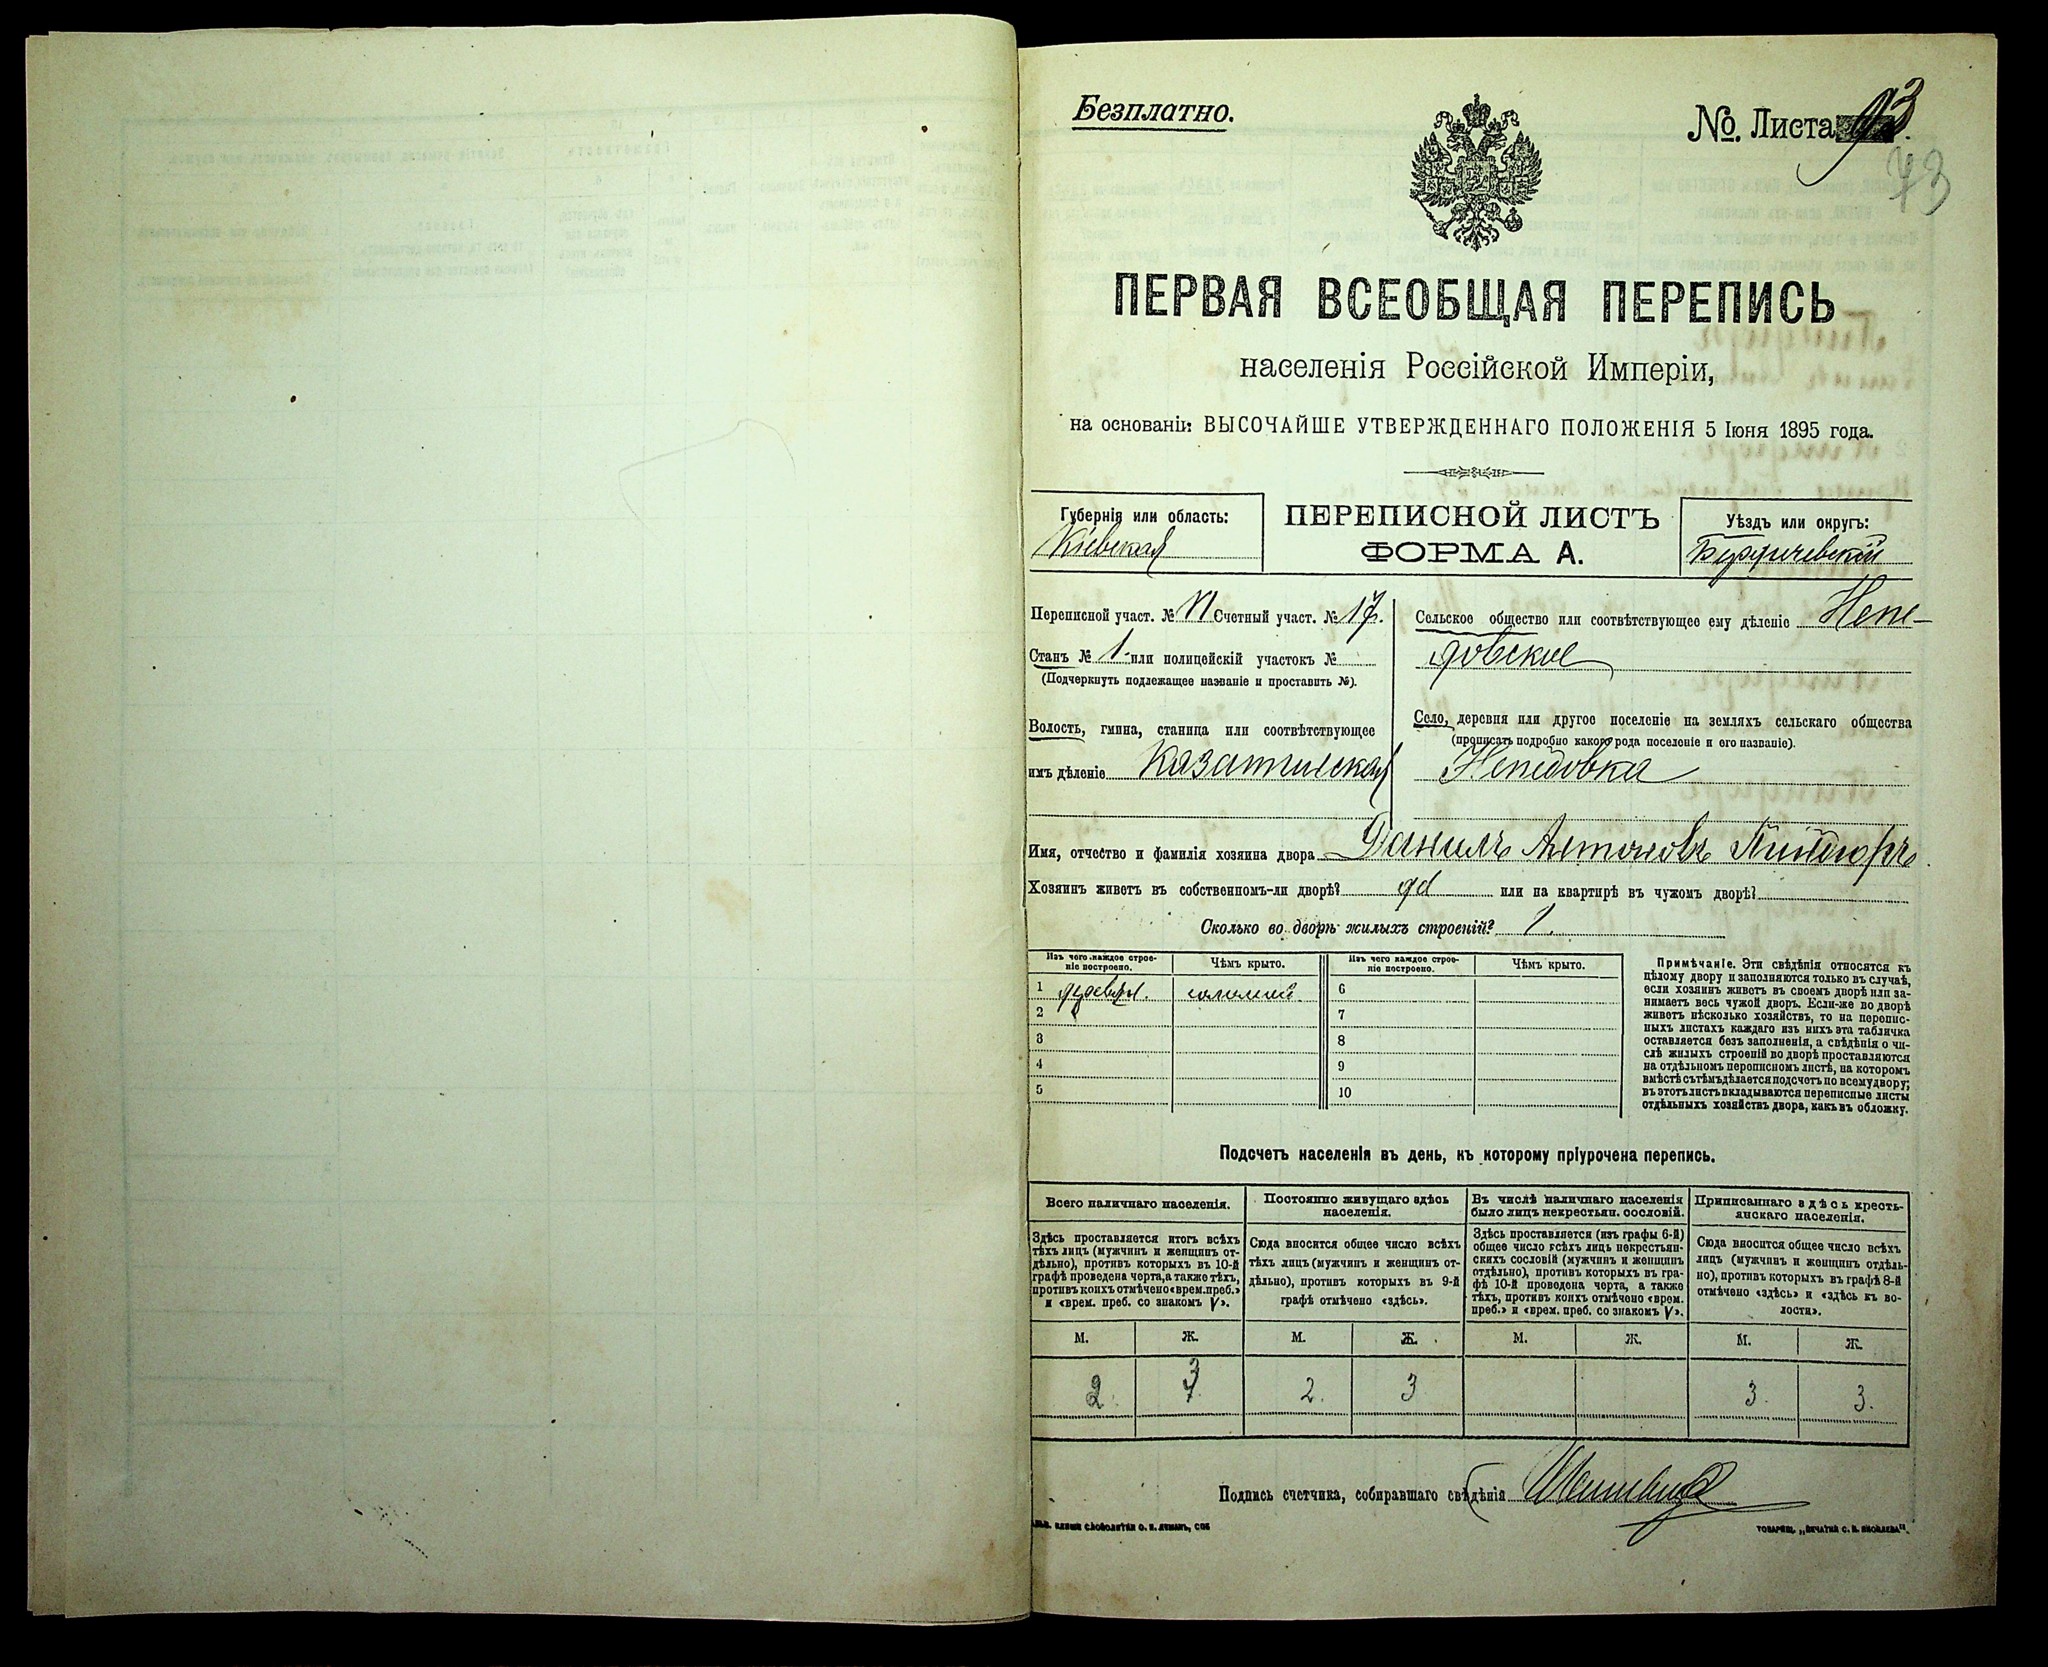 Безплатно.
№. Листа 93.
43
ПЕРВАЯ ВСЕОБЩАЯ ПЕРЕПИСЬ
населенія Россійской Имперіи,
на основаніи ВЫСОЧАЙШЕ УТВЕРЖДЕННАГО ПОЛОЖЕНІЯ 5 Іюня 1895 года.
Губернія или область:
Кіевская
ПЕРЕПИСНОЙ ЛИСТЪ
ФОРМА А.
Уѣздъ или округъ:
Бердичевскій
Переписной участ. № VI Счетный участ. № 17.
Станъ № 1 или полицейскій участокъ №
(Подчеркнуть подлежащее названіе и проставить №).
Волость, гмина, станица или соотвѣтствующее
имъ дѣленіе Казатинская
Сельское общество или соотвѣтствующее ему дѣленіе Непе-
довское
Село, деревня или другое поселеніе на земляхъ сельскаго общества
(прописать подробно какого рода поселеніе и его названіе).
Непедовка
Имя, отчество и фамилія хозяина двора Данилъ Антоновъ
Хозяинъ живетъ въ собственномъ-ли дворѣ? да или на квартирѣ въ чужомъ дворѣ?
Сколько во дворѣ жилыхъ строеній? 1.
Изъ чего каждое строе-
ніе построено.
Чѣмъ крыто.
Изъ чего каждое строе-
ніе построено.
Чѣмъ крыто.
1 деревян. соломой 6
2 7
3 8
4 9
5 10
Примѣчаніе. Эти свѣдѣнія относятся къ
цѣлому двору и заполняются только въ случаѣ,
если хозяинъ живетъ въ своемъ дворѣ или за-
нимаетъ весь чужой дворъ. Если-же во дворѣ
живетъ нѣсколько хозяйствъ, то на перепис-
ныхъ листахъ каждаго изъ нихъ эта табличка
оставляется безъ заполненія, а свѣдѣнія о чи-
слѣ жилыхъ строеній во дворѣ проставляются
на отдѣльномъ переписномъ листѣ, на которомъ
вмѣстѣ съ тѣмъ дѣлается подсчетъ по всему двору;
въ этотъ листъ вкладываются переписные листы
отдѣльныхъ хозяйствъ двора, какъ въ обложку.
Подсчетъ населенія въ день, къ которому пріурочена перепись.
Всего наличнаго населенія.
Здѣсь проставляется итогъ всѣхъ
тѣхъ лицъ (мужчинъ и женщинъ от-
дѣльно), противъ которыхъ въ 10-й
графѣ проведена черта, а также тѣхъ,
противъ коихъ отмѣчено «врем. преб.»
и «врем. преб. со знакомъ V».
Постоянно живущаго здѣсь
населенія.
Сюда вносится общее число всѣхъ
тѣхъ лицъ (мужчинъ и женщинъ от-
дѣльно), противъ которыхъ въ 9-й
графѣ отмѣчено «здѣсь».
Въ числѣ наличнаго населенія
было лицъ некрестьян. сословій.
Здѣсь проставляется (изъ графы 6-й)
общее число всѣхъ лицъ некрестьян-
скихъ сословій (мужчинъ и женщинъ
отдѣльно), противъ которыхъ въ гра-
фѣ 10-й проведена черта, а также
тѣхъ, противъ коихъ отмѣчено «врем.
преб.» и «врем. преб. со знакомъ V».
Приписаннаго здѣсь кресть-
янскаго населенія.
Сюда вносится общее число всѣхъ
лицъ (мужчинъ и женщинъ отдѣль-
но), противъ которыхъ въ графѣ 8-й
отмѣчено «здѣсь» и «здѣсь къ во-
лости».
М. Ж. М. Ж. М. Ж. М. Ж.
2. 3 2. 3 3. 3.
Подпись счетчика, собиравшаго свѣдѣнія
СЛОВОЛИТНИ О. И. ЛЕМАНЪ, СПБ
ТОВАРИЩ. „ПЕЧАТНИ С. П. ЯКОВЛЕВА".